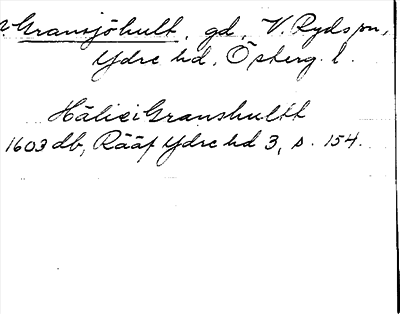 Gransjöhult, gd, V. Ryds sn,
Ydre hd, Österg. l.
Hălie i Granshultt
1603 db, Rääf Ydre hd 3, s. 154.